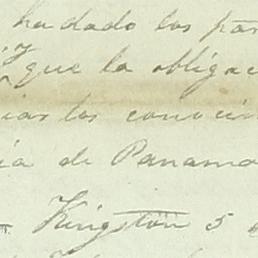 ha dado los pas
que la obligac
ias los conocim
ia de Panama
Kingston 5